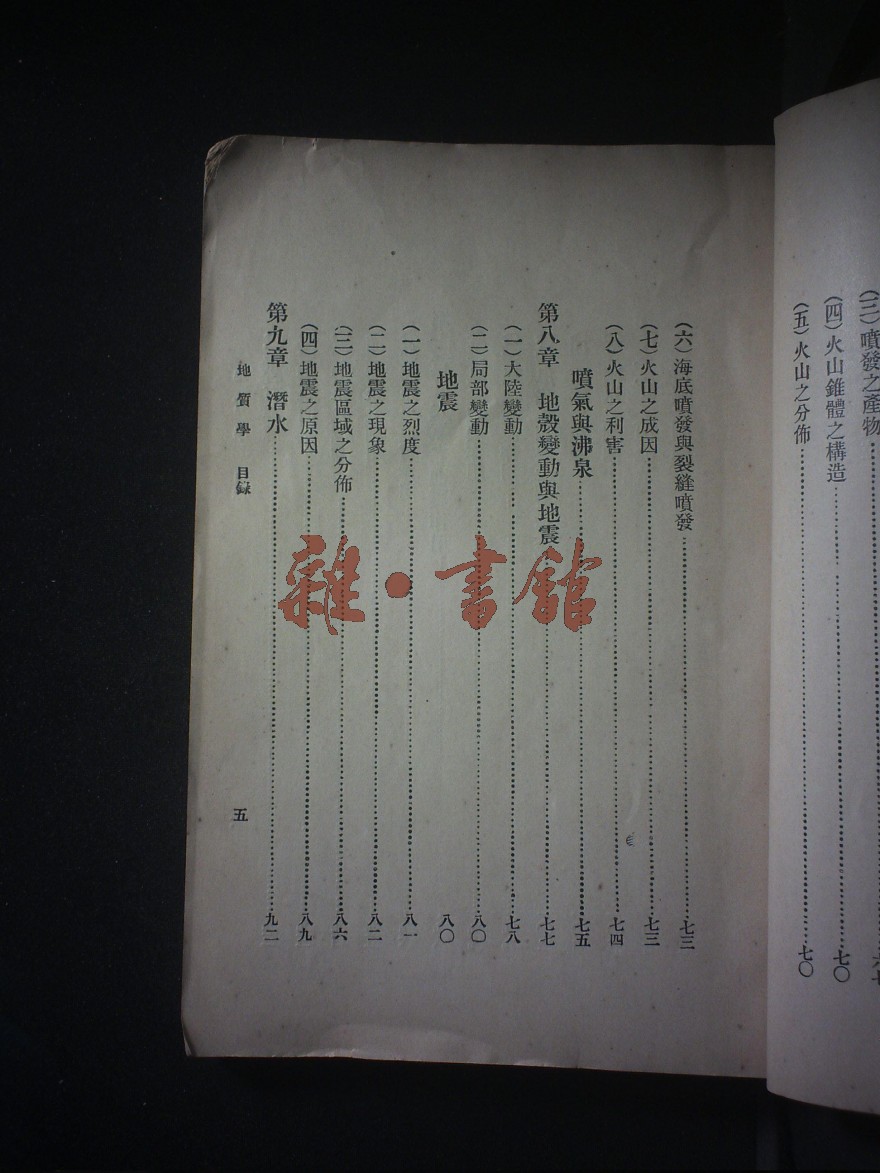 (三)噴發之產物
(四)火山錐體之構造……七〇
(五)火山之分佈……七〇
(六)海底噴發與裂縫噴發……七三
(七)火山之成因……七三
(八)火山之利害……七四
噴氣與沸泉……七五
第八章 地殼變動與地震……七七
(一)大陸變動……七八
(二)局部變動……八〇
地震 八〇
(一)地震之烈度……八一
(二)地震之現象……八二
(三)地震區域之分佈……八六
(四)地震之原因……八九
第九章 潛水……九二
地質學 目錄 五
雜·書館